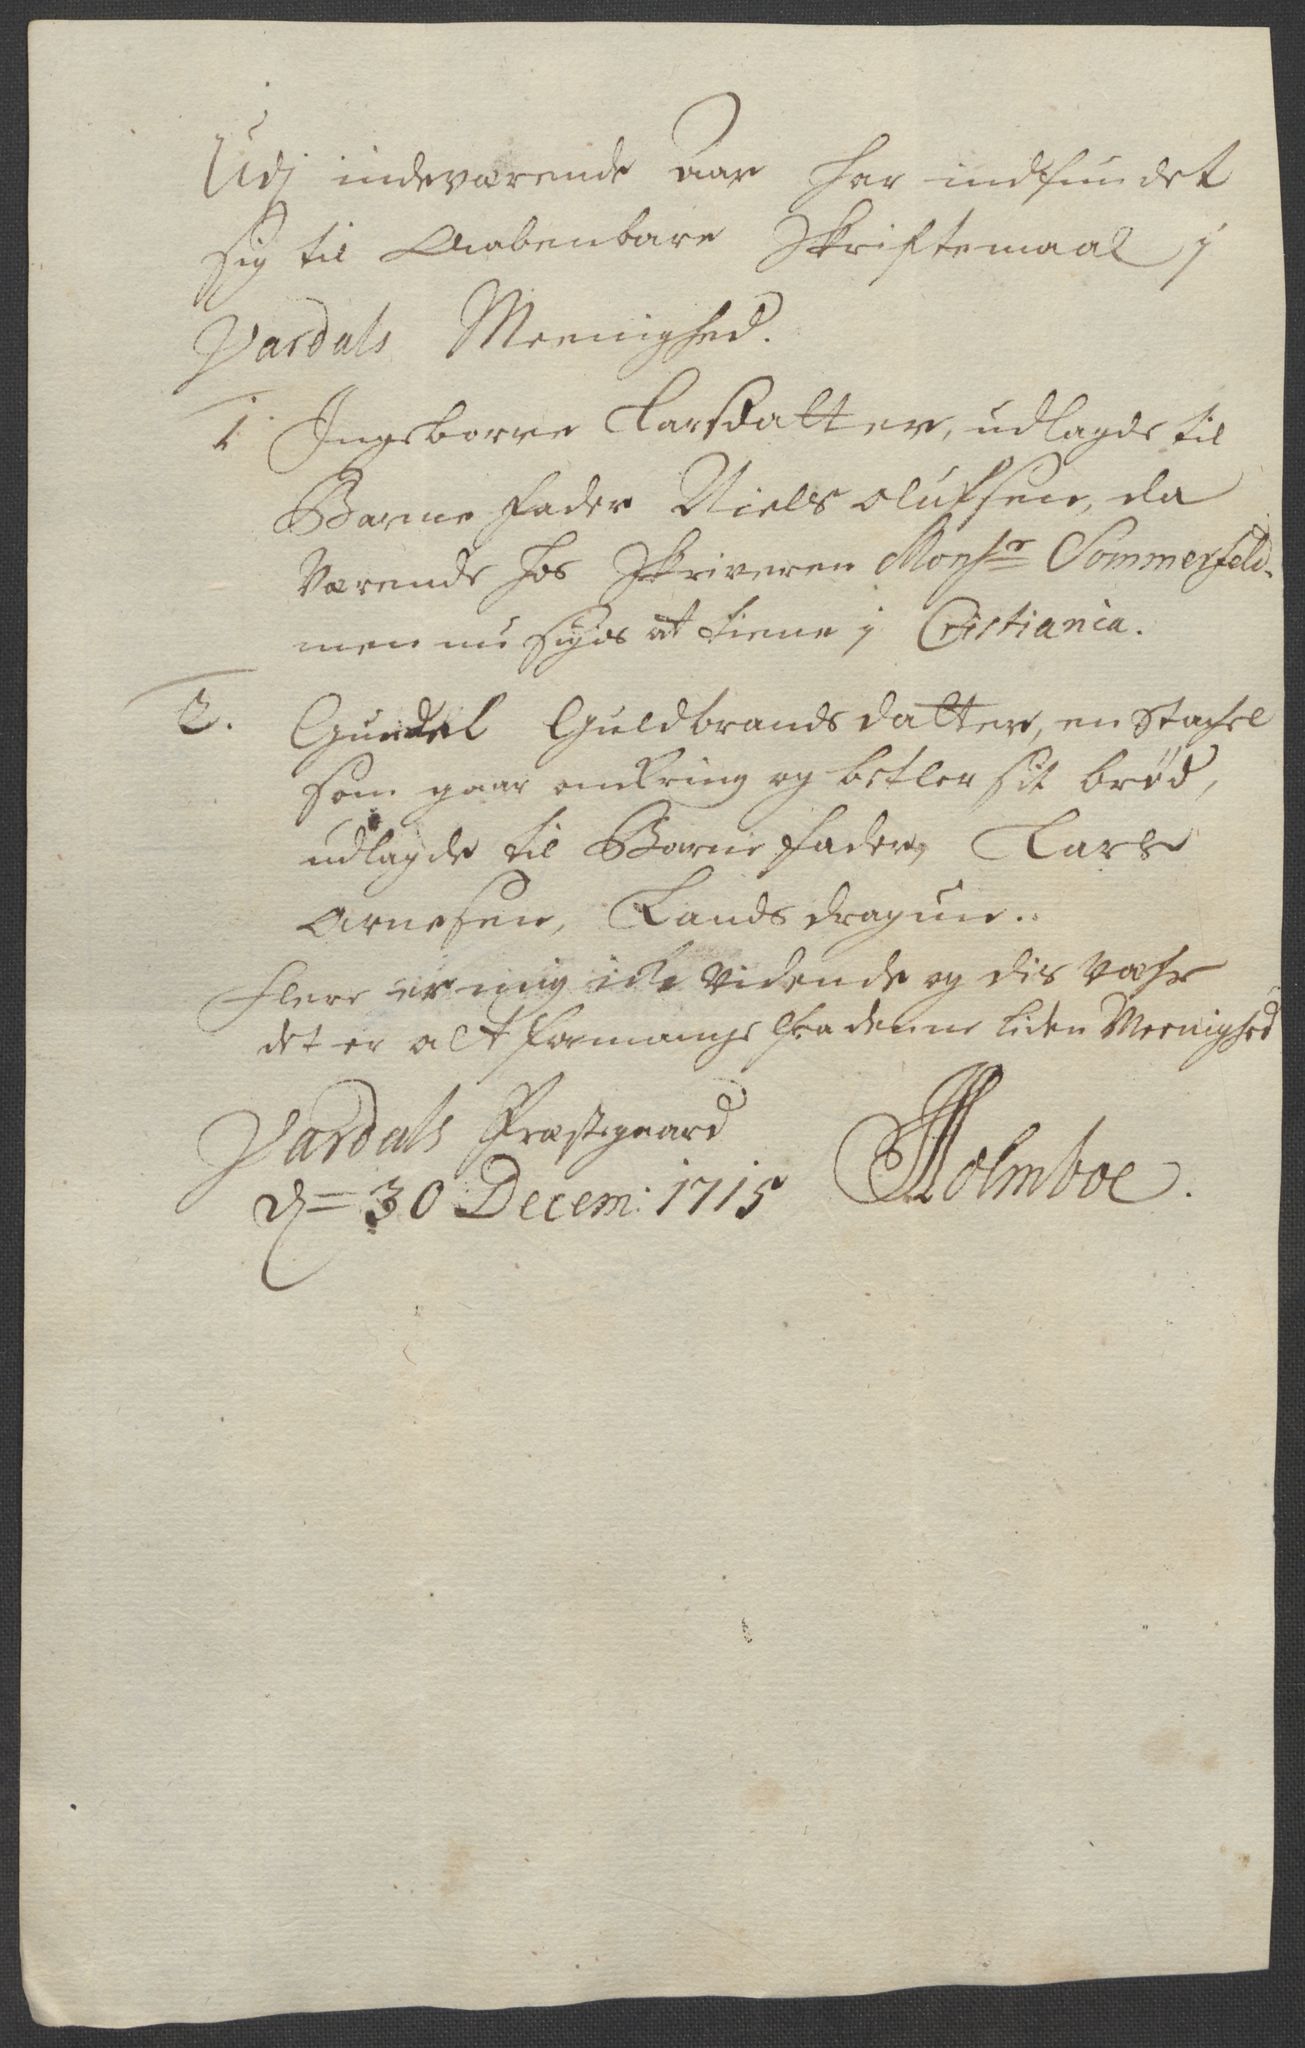 Udj indeværende aar har indfundet
sig til Aabenbare Skriftemaal j
Vardals Meenighed.
1 Ingeborre Larsdatter, udlagde til
Barne fader Niels olufsen, da
værende hos Skriveren Monsr Sommerfeld
men nu siges at tiene j Cristiania.
2. Gundel Guldbrandsdatter, en Stachel
som gaar omkring og betler sit brød,
udlagde til Barne fader, Lars
Arnesen, Lands dragun.
Flere er mig icke vidende og dis
det er alt formange fra denne liden Meenighed
Vardals Præstegaard
d 30 Decem: 1715 Holmboe.